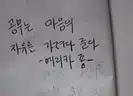 공부는 마음의
자유를 가져다 준다
-메리카 홍-